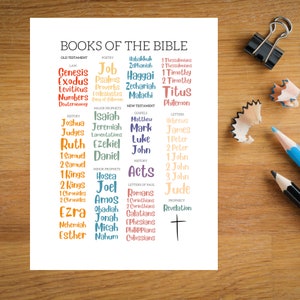 BOOKS OF THE BIBLE
OLD TESTAMENT
LAW
Genesis
Exodus
Leviticus
Numbers
Deuteronomy
HISTORY
Joshua
Judges
Ruth
1 Samuel
2 Samuel
1 Kings
2 Kings
1 Chronicles
2 Chronicles
Ezra
Nehemiah
Esther
POETRY
Job
Psalms
Proverbs
Ecclesiastes
Song of Solomon
MAJOR PROPHETS
Isaiah
Jeremiah
Lamentations
Ezekiel
Daniel
MINOR PROPHETS
Hosea
Joel
Amos
Obadiah
Jonah
Micah
Nahum
Habakkuk
Zephaniah
Haggai
Zechariah
Malachi
NEW TESTAMENT
GOSPELS
Matthew
Mark
Luke
John
HISTORY
Acts
LETTERS OF PAUL
Romans
1 Corinthians
2 Corinthians
Galatians
Ephesians
Philippians
Colossians
1 Thessalonians
2 Thessalonians
1 Timothy
2 Timothy
Titus
Philemon
LETTERS
Hebrews
James
1 Peter
2 Peter
1 John
2 John
3 John
Jude
PROPHECY
Revelation